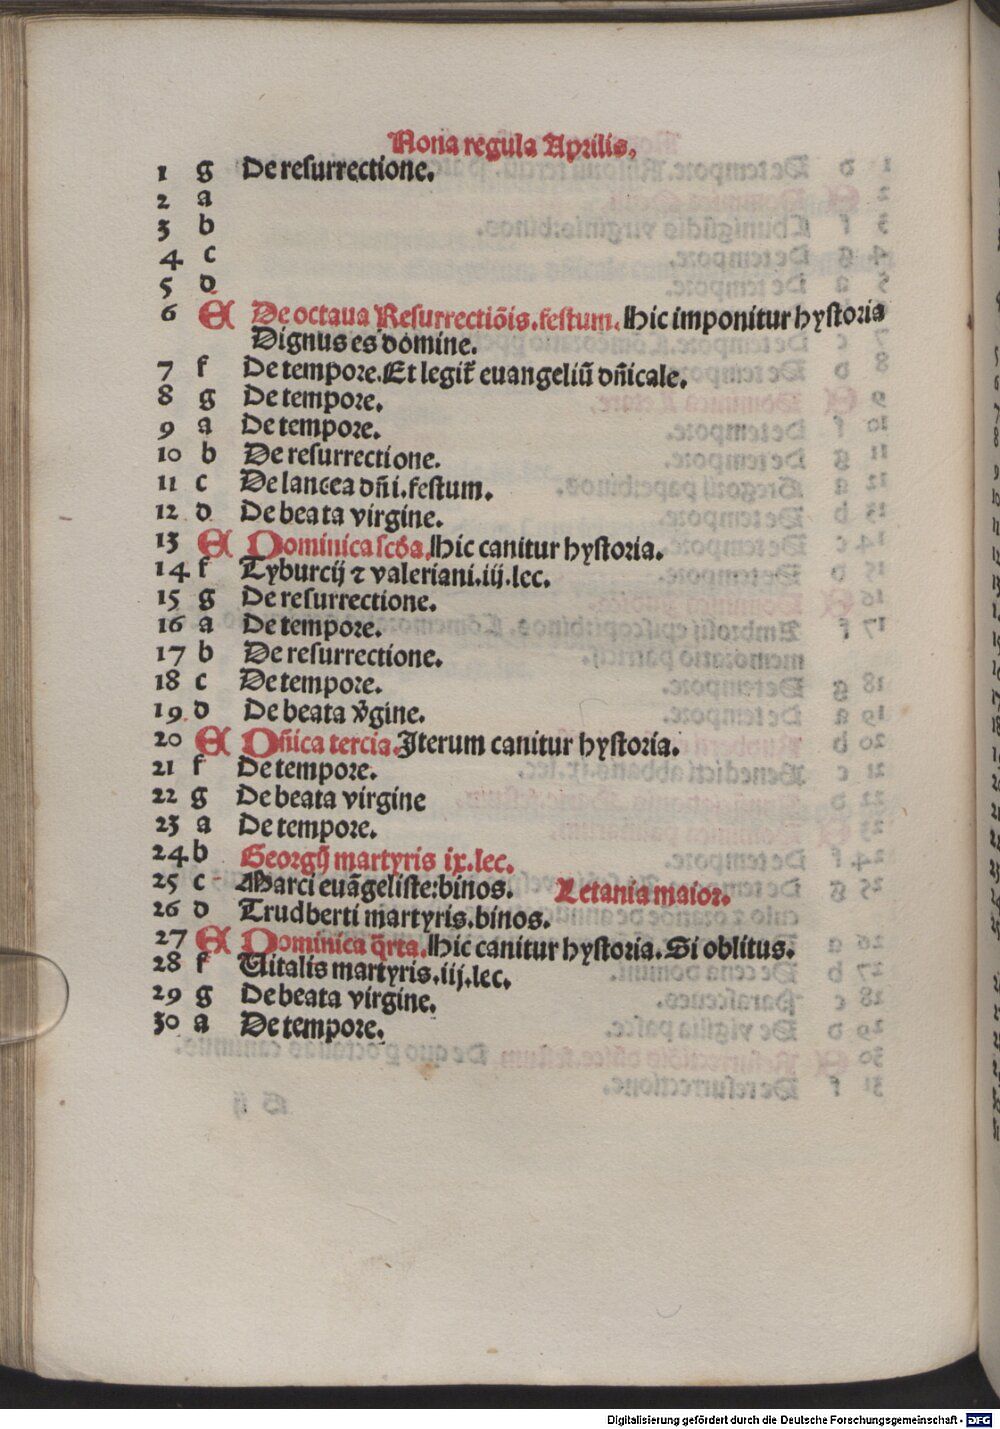 Nona regula Aprilis,
1 g De resurrectione.
2 a
3 b
4 c
5 d
6 A De octaua Resurrectiōis.festum. Hic imponitur hystoria
Dignus es domine.
7 f De tempore.Et legit᷑ euangeliū dn̄icale.
8 g De tempore.
9 a De tempore.
10 b De resurrectione.
11 c De lancea dn̄i.festum.
12 d De beata virgine.
13 A Dominica scd̄a.Hic canitur hystoria.
14 f Tyburcij ⁊ valeriani.iij.lec.
15 g De resurrectione.
16 a De tempore.
17 b De resurrectione.
18 c De tempore.
19 d De beata v̄gine.
20 A Dn̄ica tercia.Iterum canitur hystoria.
21 f De tempore.
22 g De beata virgine
23 a De tempore.
24 b Georgij martyris ix.lec.
25 c Marci euāgeliste:binos. Letania maior.
26 d Trudberti martyris.binos.
27 A Dominica q̄rta.Hic canitur hystoria. Si oblitus.
28 f Uitalis martyris.iij.lec.
29 g De beata virgine.
30 a De tempore.
Digitalisierung gefördert durch die Deutsche Forschungsgemeinschaft - DFG